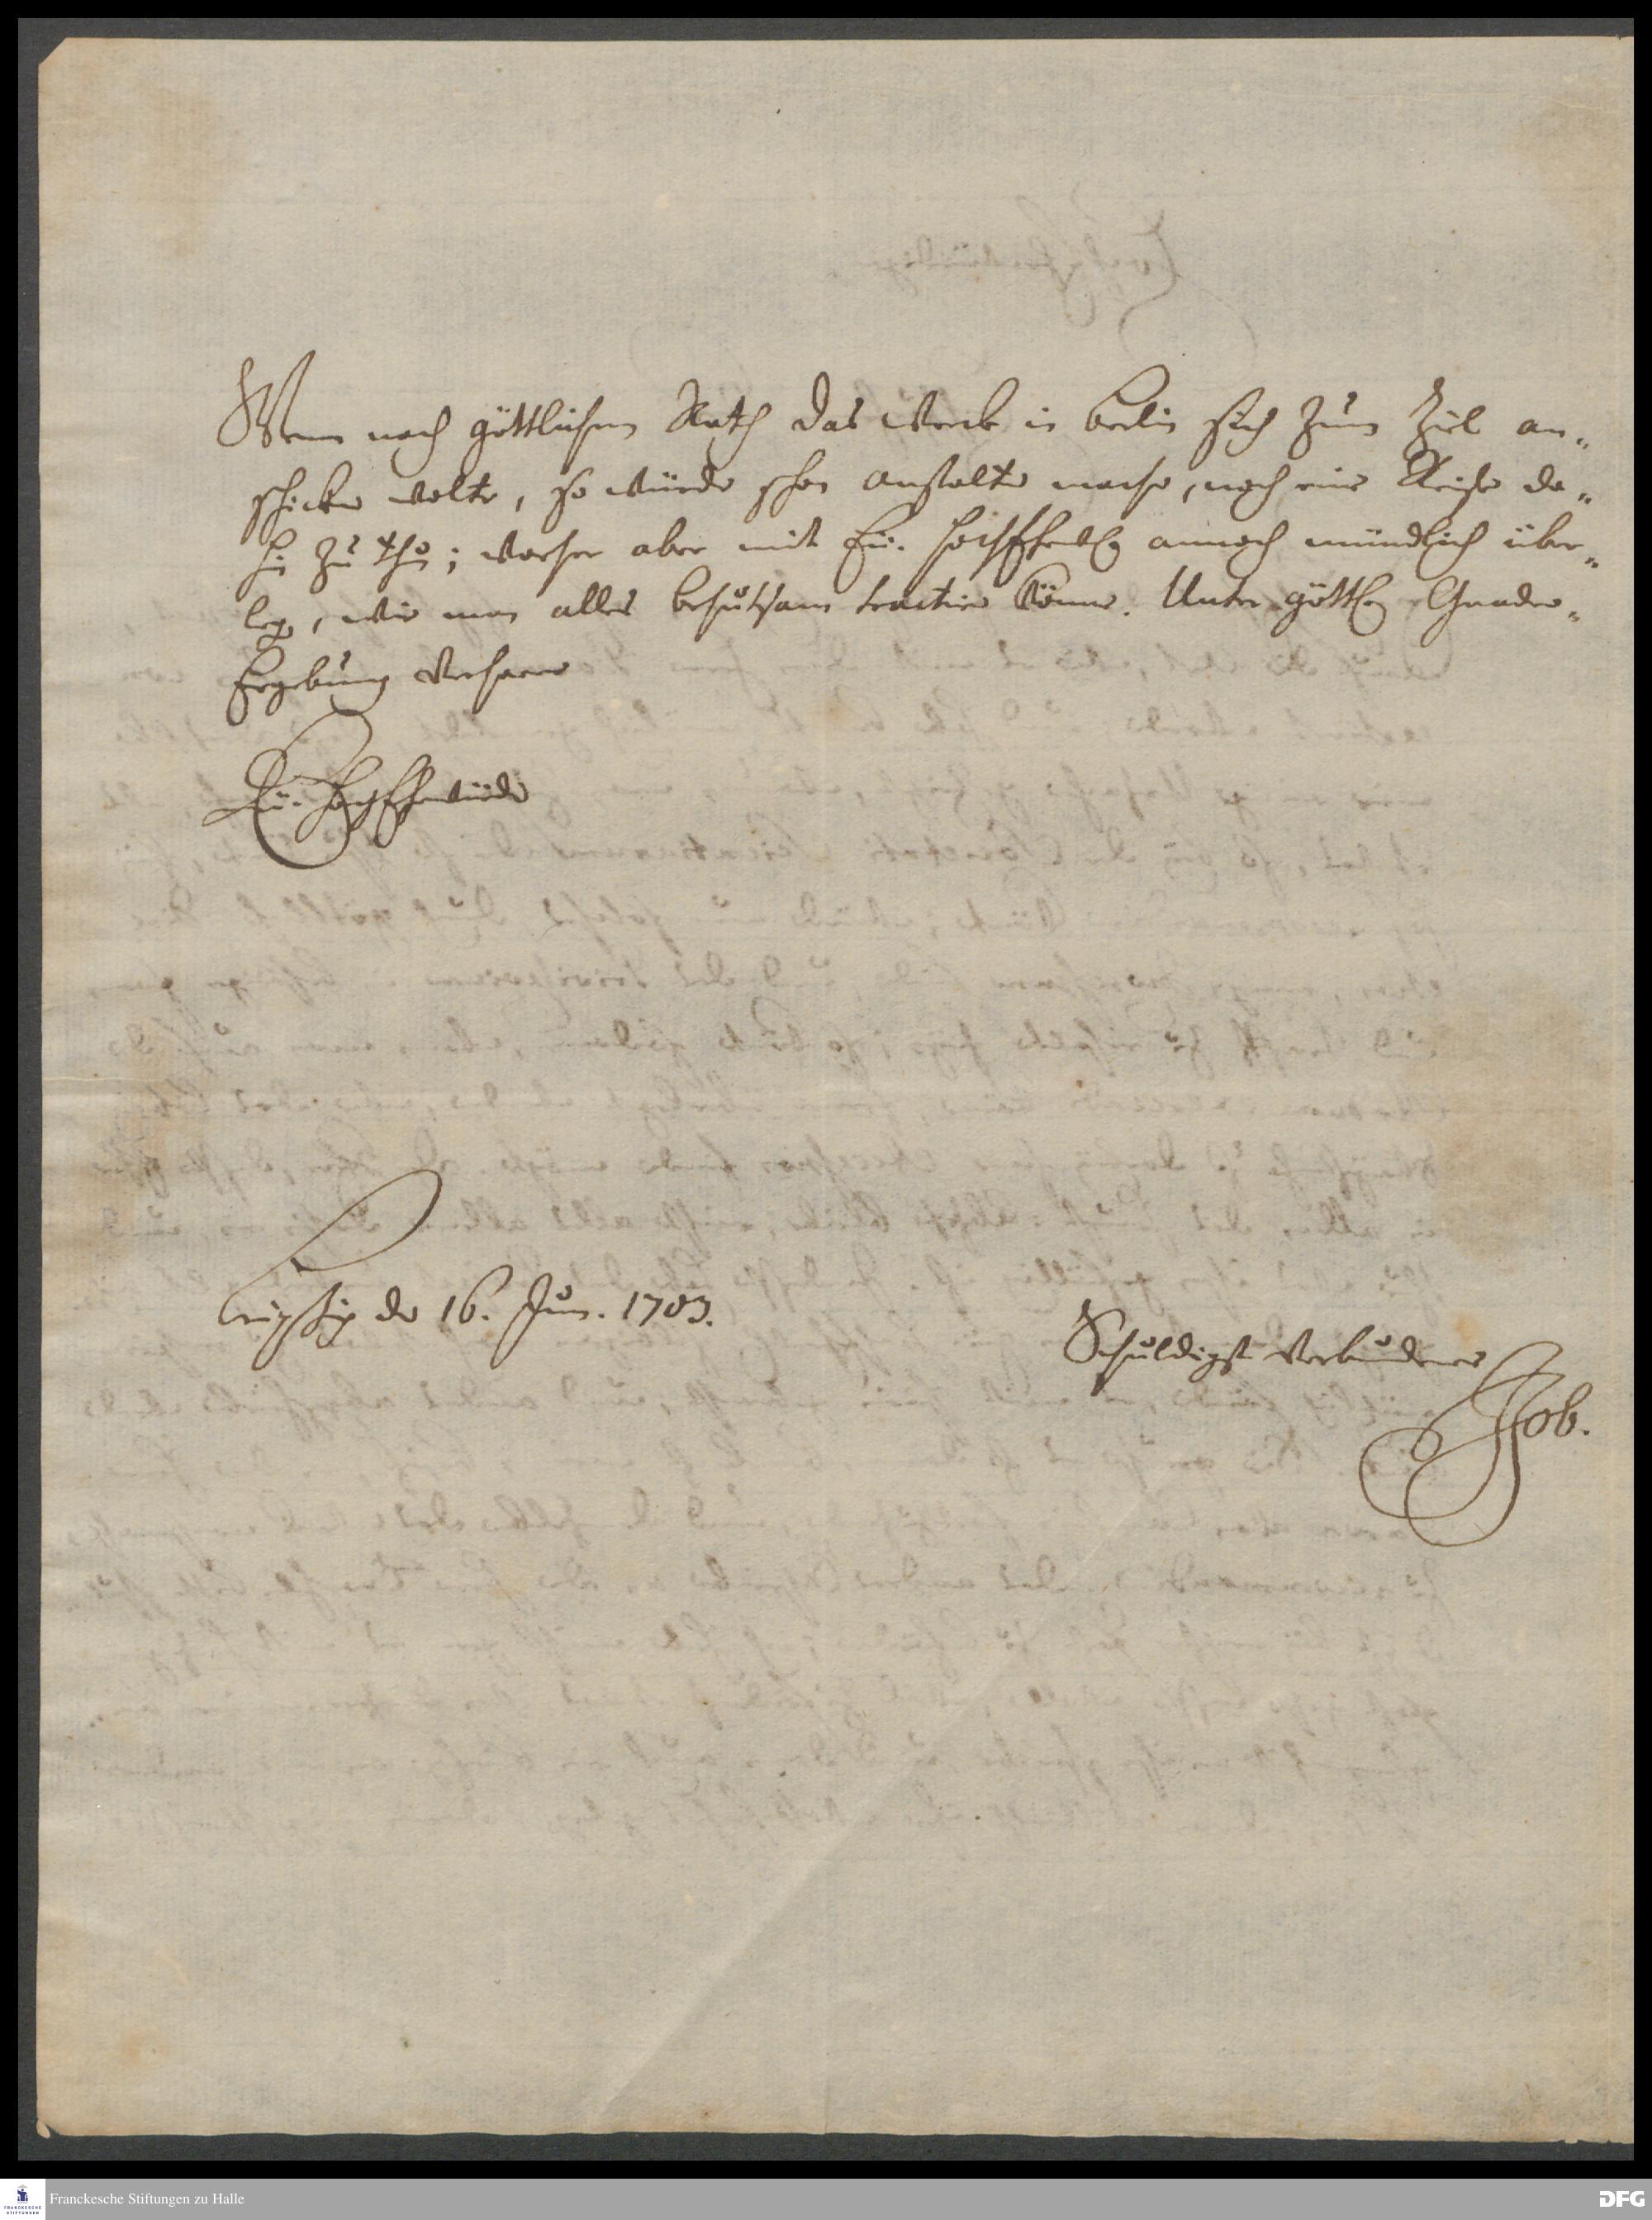 Wenn nach göttlichem Rath das Werck in Berlin sich zum Ziel an-
schicken wolte, so würde schon Anstalten machen, noch eine Reise da-
hin zu thun; vorher aber mit Eu. HochEhrw. annoch mündlich über-
legen, wie man alles behutsam tractiren könne. Unter göttl. Gnaden-
Ergebung verharre
Eu. HochEhrwürden
Leipzig den 16. Jun. 1703.
Schuldigst verbundener
Job.
Franckesche Stiftungen zu Halle
DFG